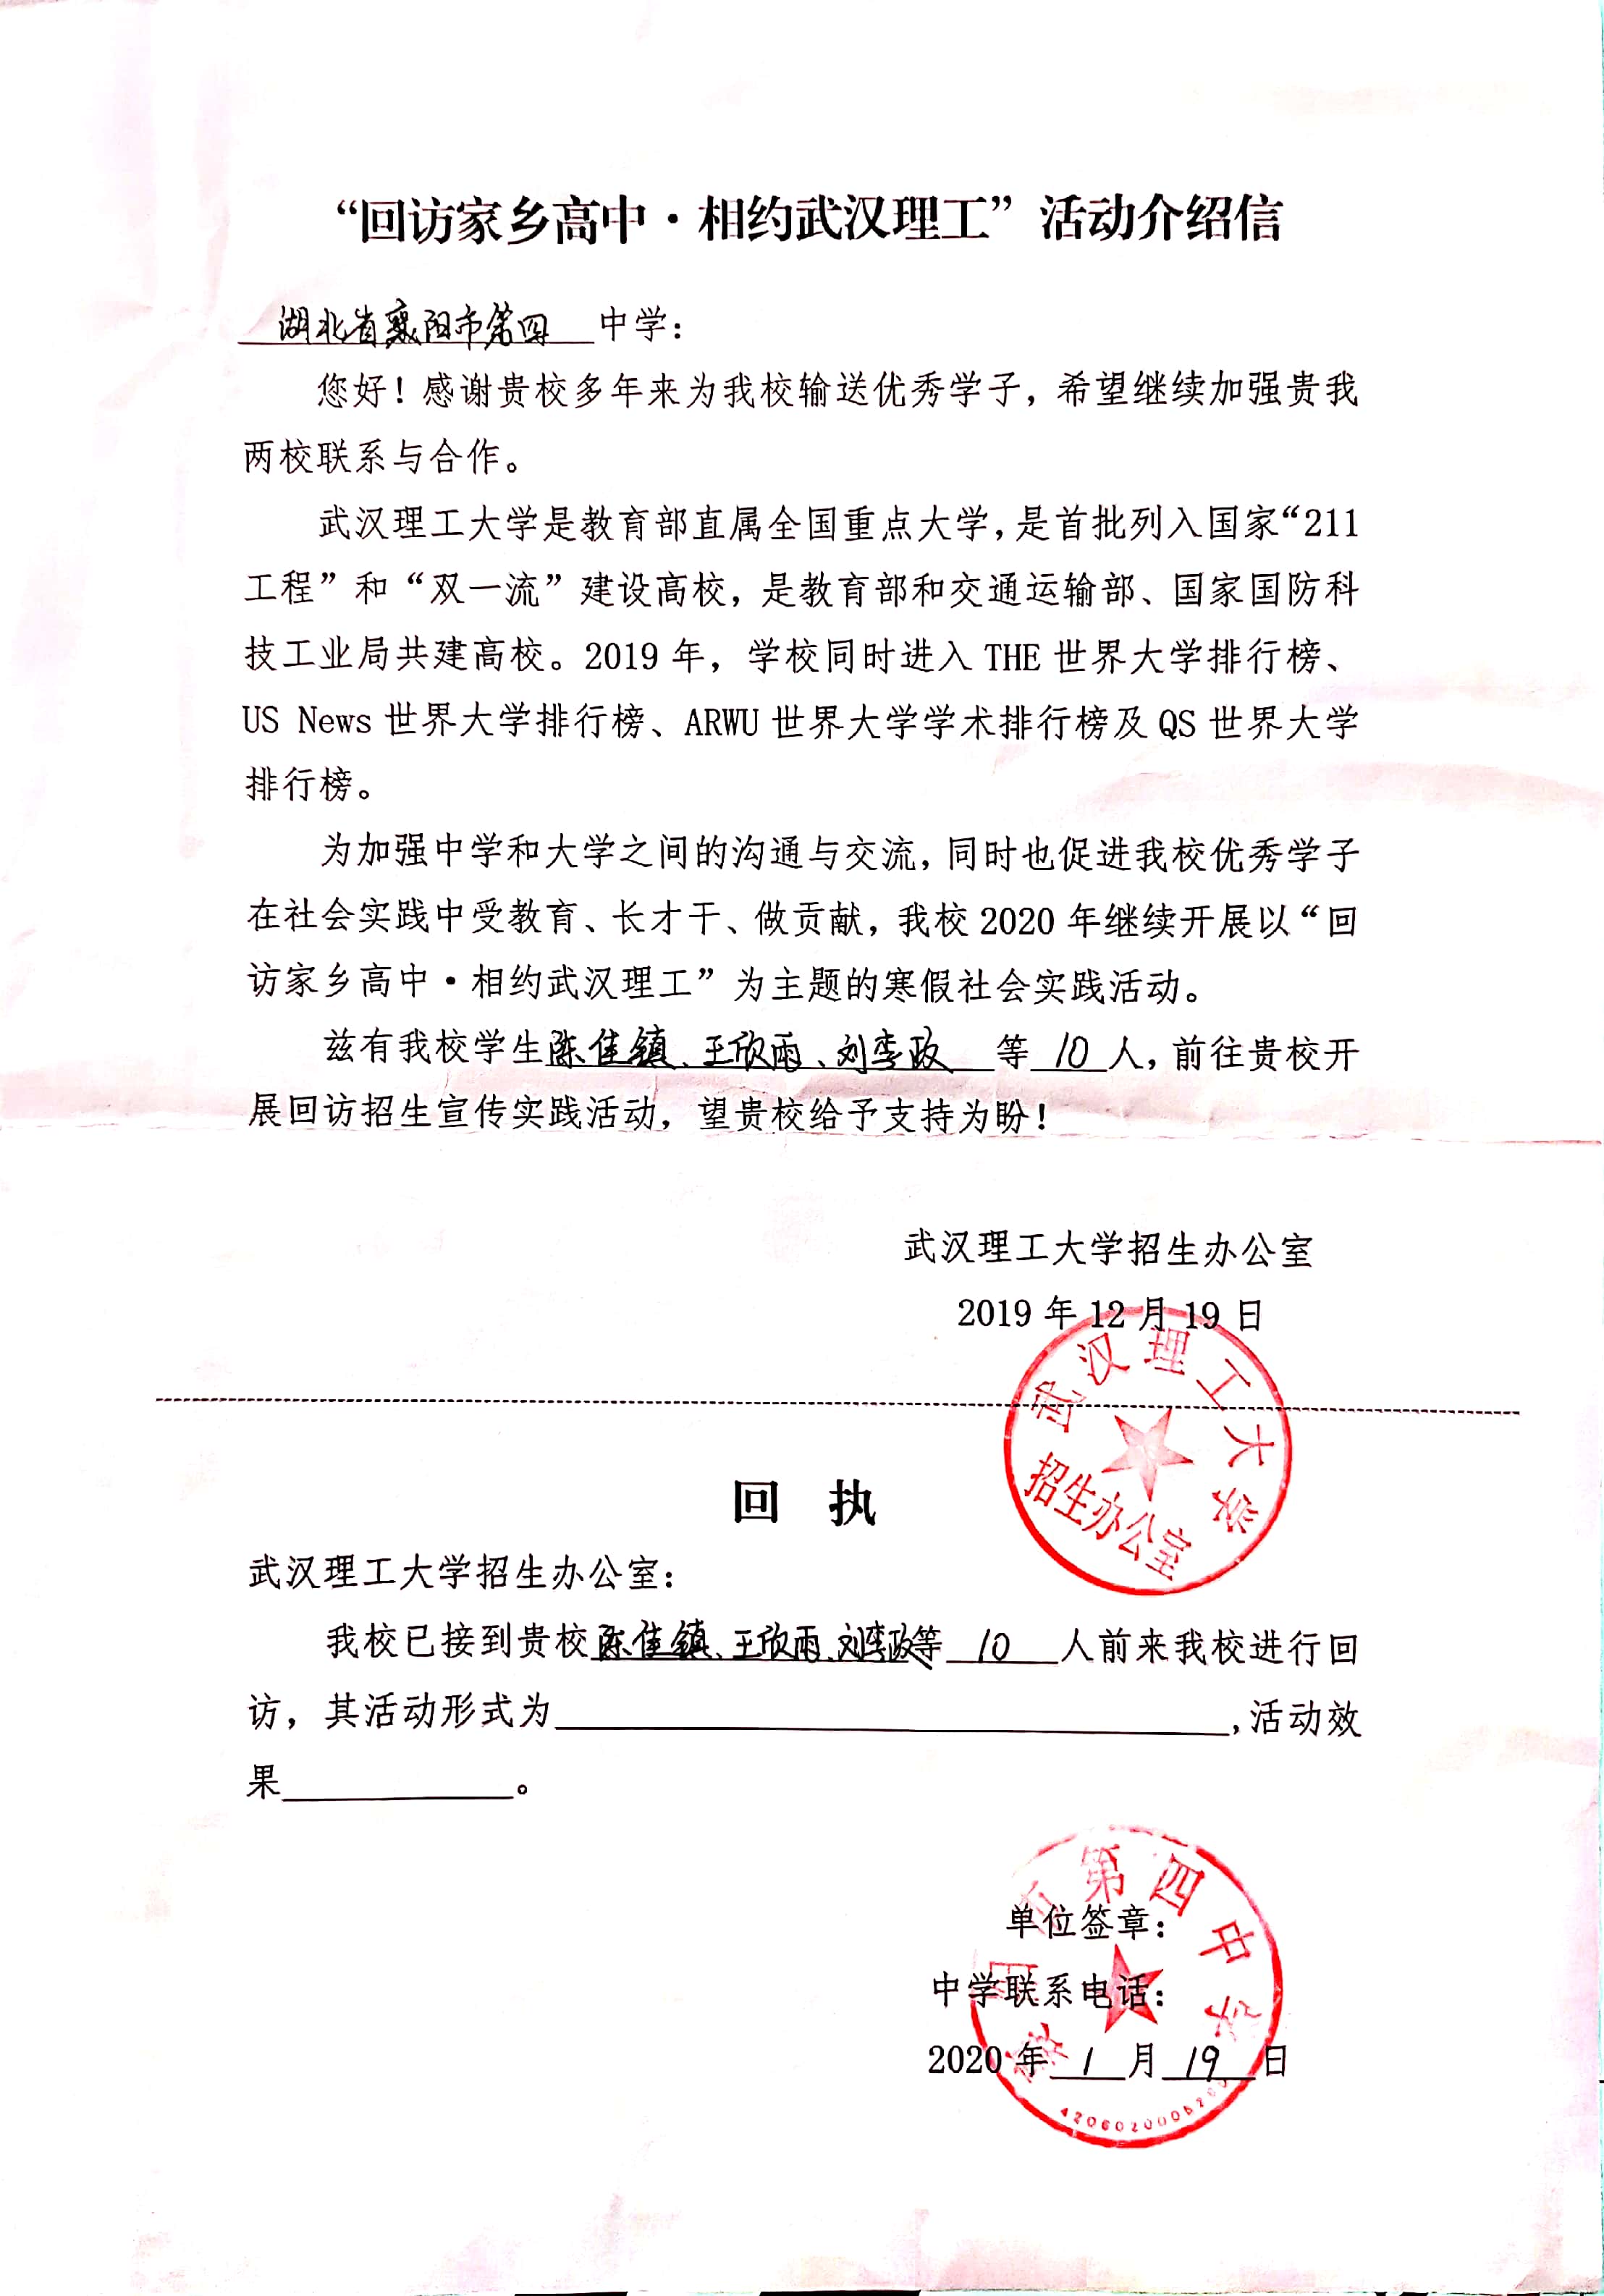 “回访家乡高中·相约武汉理工”活动介绍信
湖北省襄阳市第四 中学：
您好！感谢贵校多年来为我校输送优秀学子，希望继续加强贵我
两校联系与合作。
武汉理工大学是教育部直属全国重点大学，是首批列入国家“211
工程”和“双一流”建设高校，是教育部和交通运输部、国家国防科
技工业局共建高校。2019 年，学校同时进入 THE 世界大学排行榜、
US News 世界大学排行榜、ARWU 世界大学学术排行榜及 QS 世界大学
排行榜。
为加强中学和大学之间的沟通与交流，同时也促进我校优秀学子
在社会实践中受教育、长才干、做贡献，我校 2020 年继续开展以“回
访家乡高中·相约武汉理工”为主题的寒假社会实践活动。
兹有我校学生陈佳镇、王欣雨、刘李政 等 10 人，前往贵校开
展回访招生宣传实践活动，望贵校给予支持为盼！
武汉理工大学招生办公室
2019 年 12 月 19 日
武汉理工大学
招生办公室
回 执
武汉理工大学招生办公室：
我校已接到贵校陈佳镇、王欣雨、刘李政等 10 人前来我校进行回
访，其活动形式为，活动效
果。
襄阳市第四中学
单位签章：
中学联系电话：
2020 年 1 月 19 日